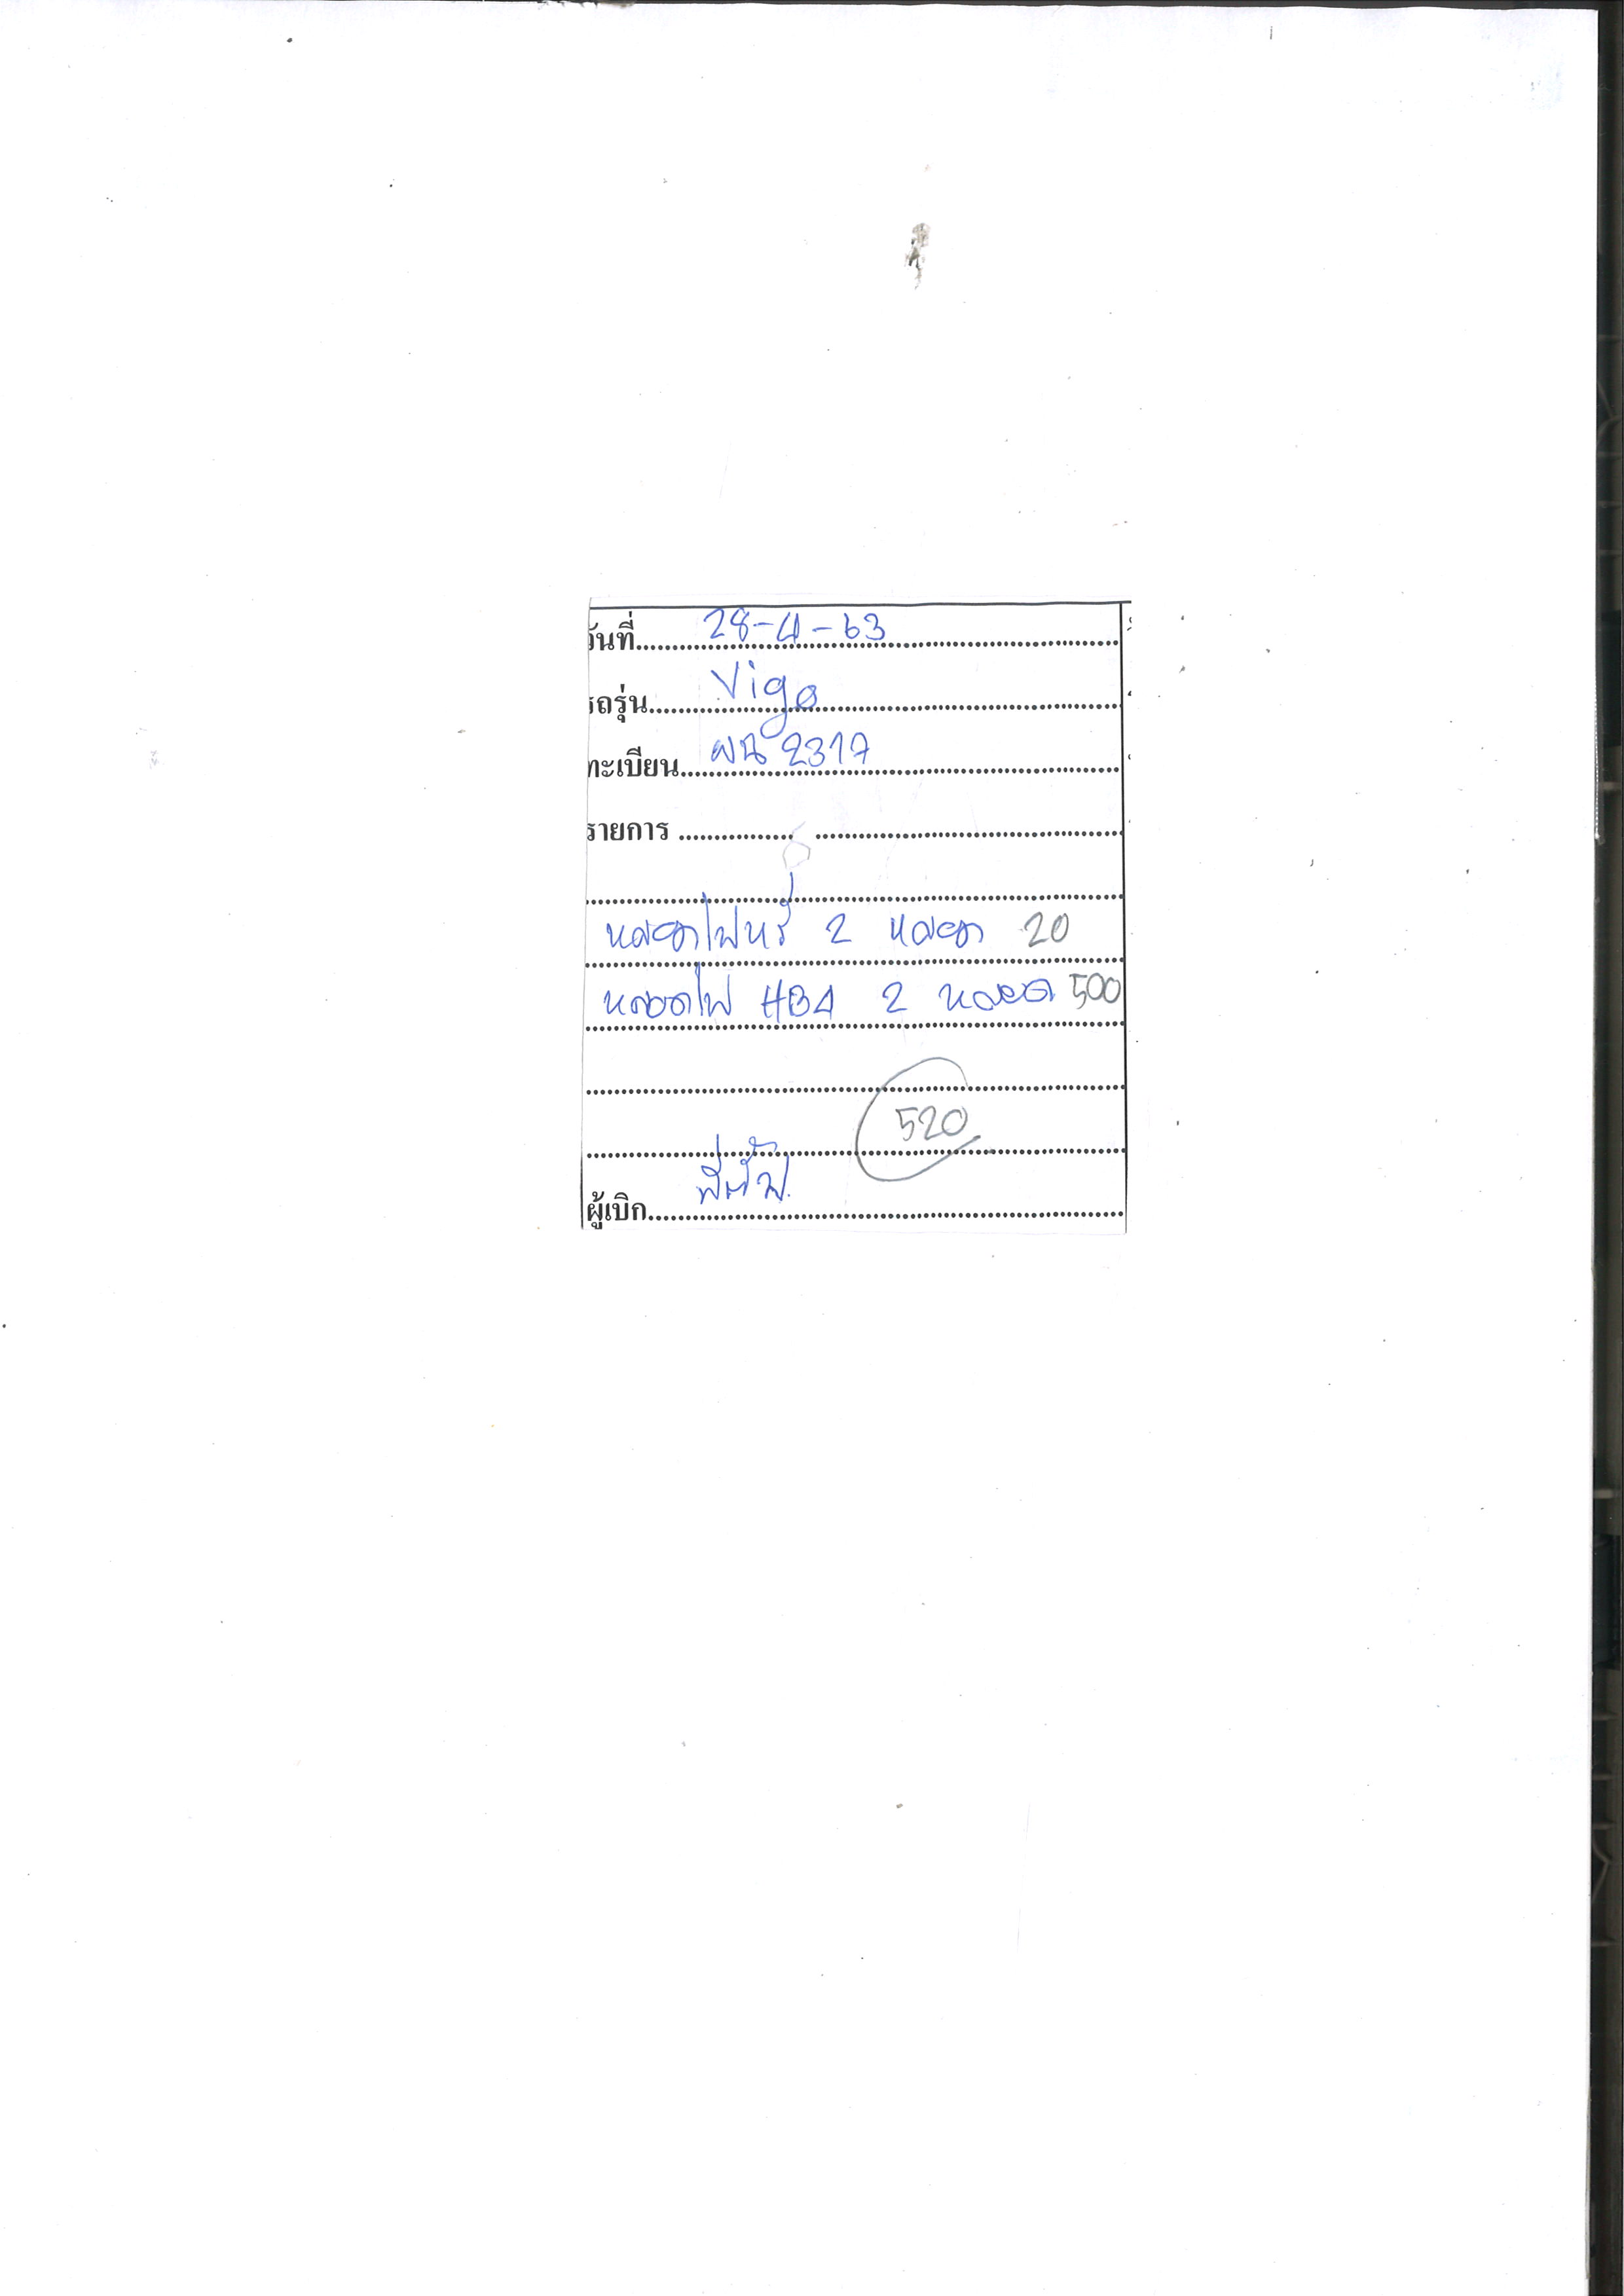 วันที่ 28-4-63
รถรุ่น Vigo
ทะเบียน ผน 2317
รายการ
หลอดไฟหรี่ 2 หลอด 20
หลอดไฟ HB4 2 หลอด 500
520
ผู้เบิก